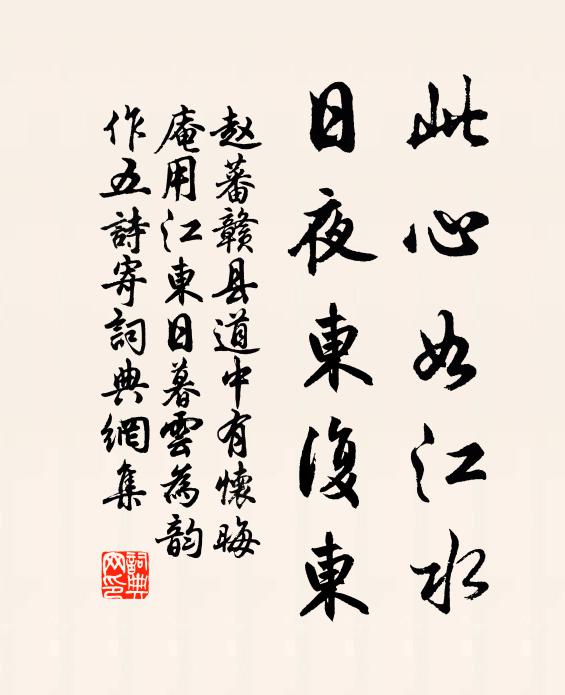 此心如江水
日夜東復東
赵蕃贛县道中有懷晦
庵用江東日暮雲為韵
作五詩寄詞典網集
詞典網印